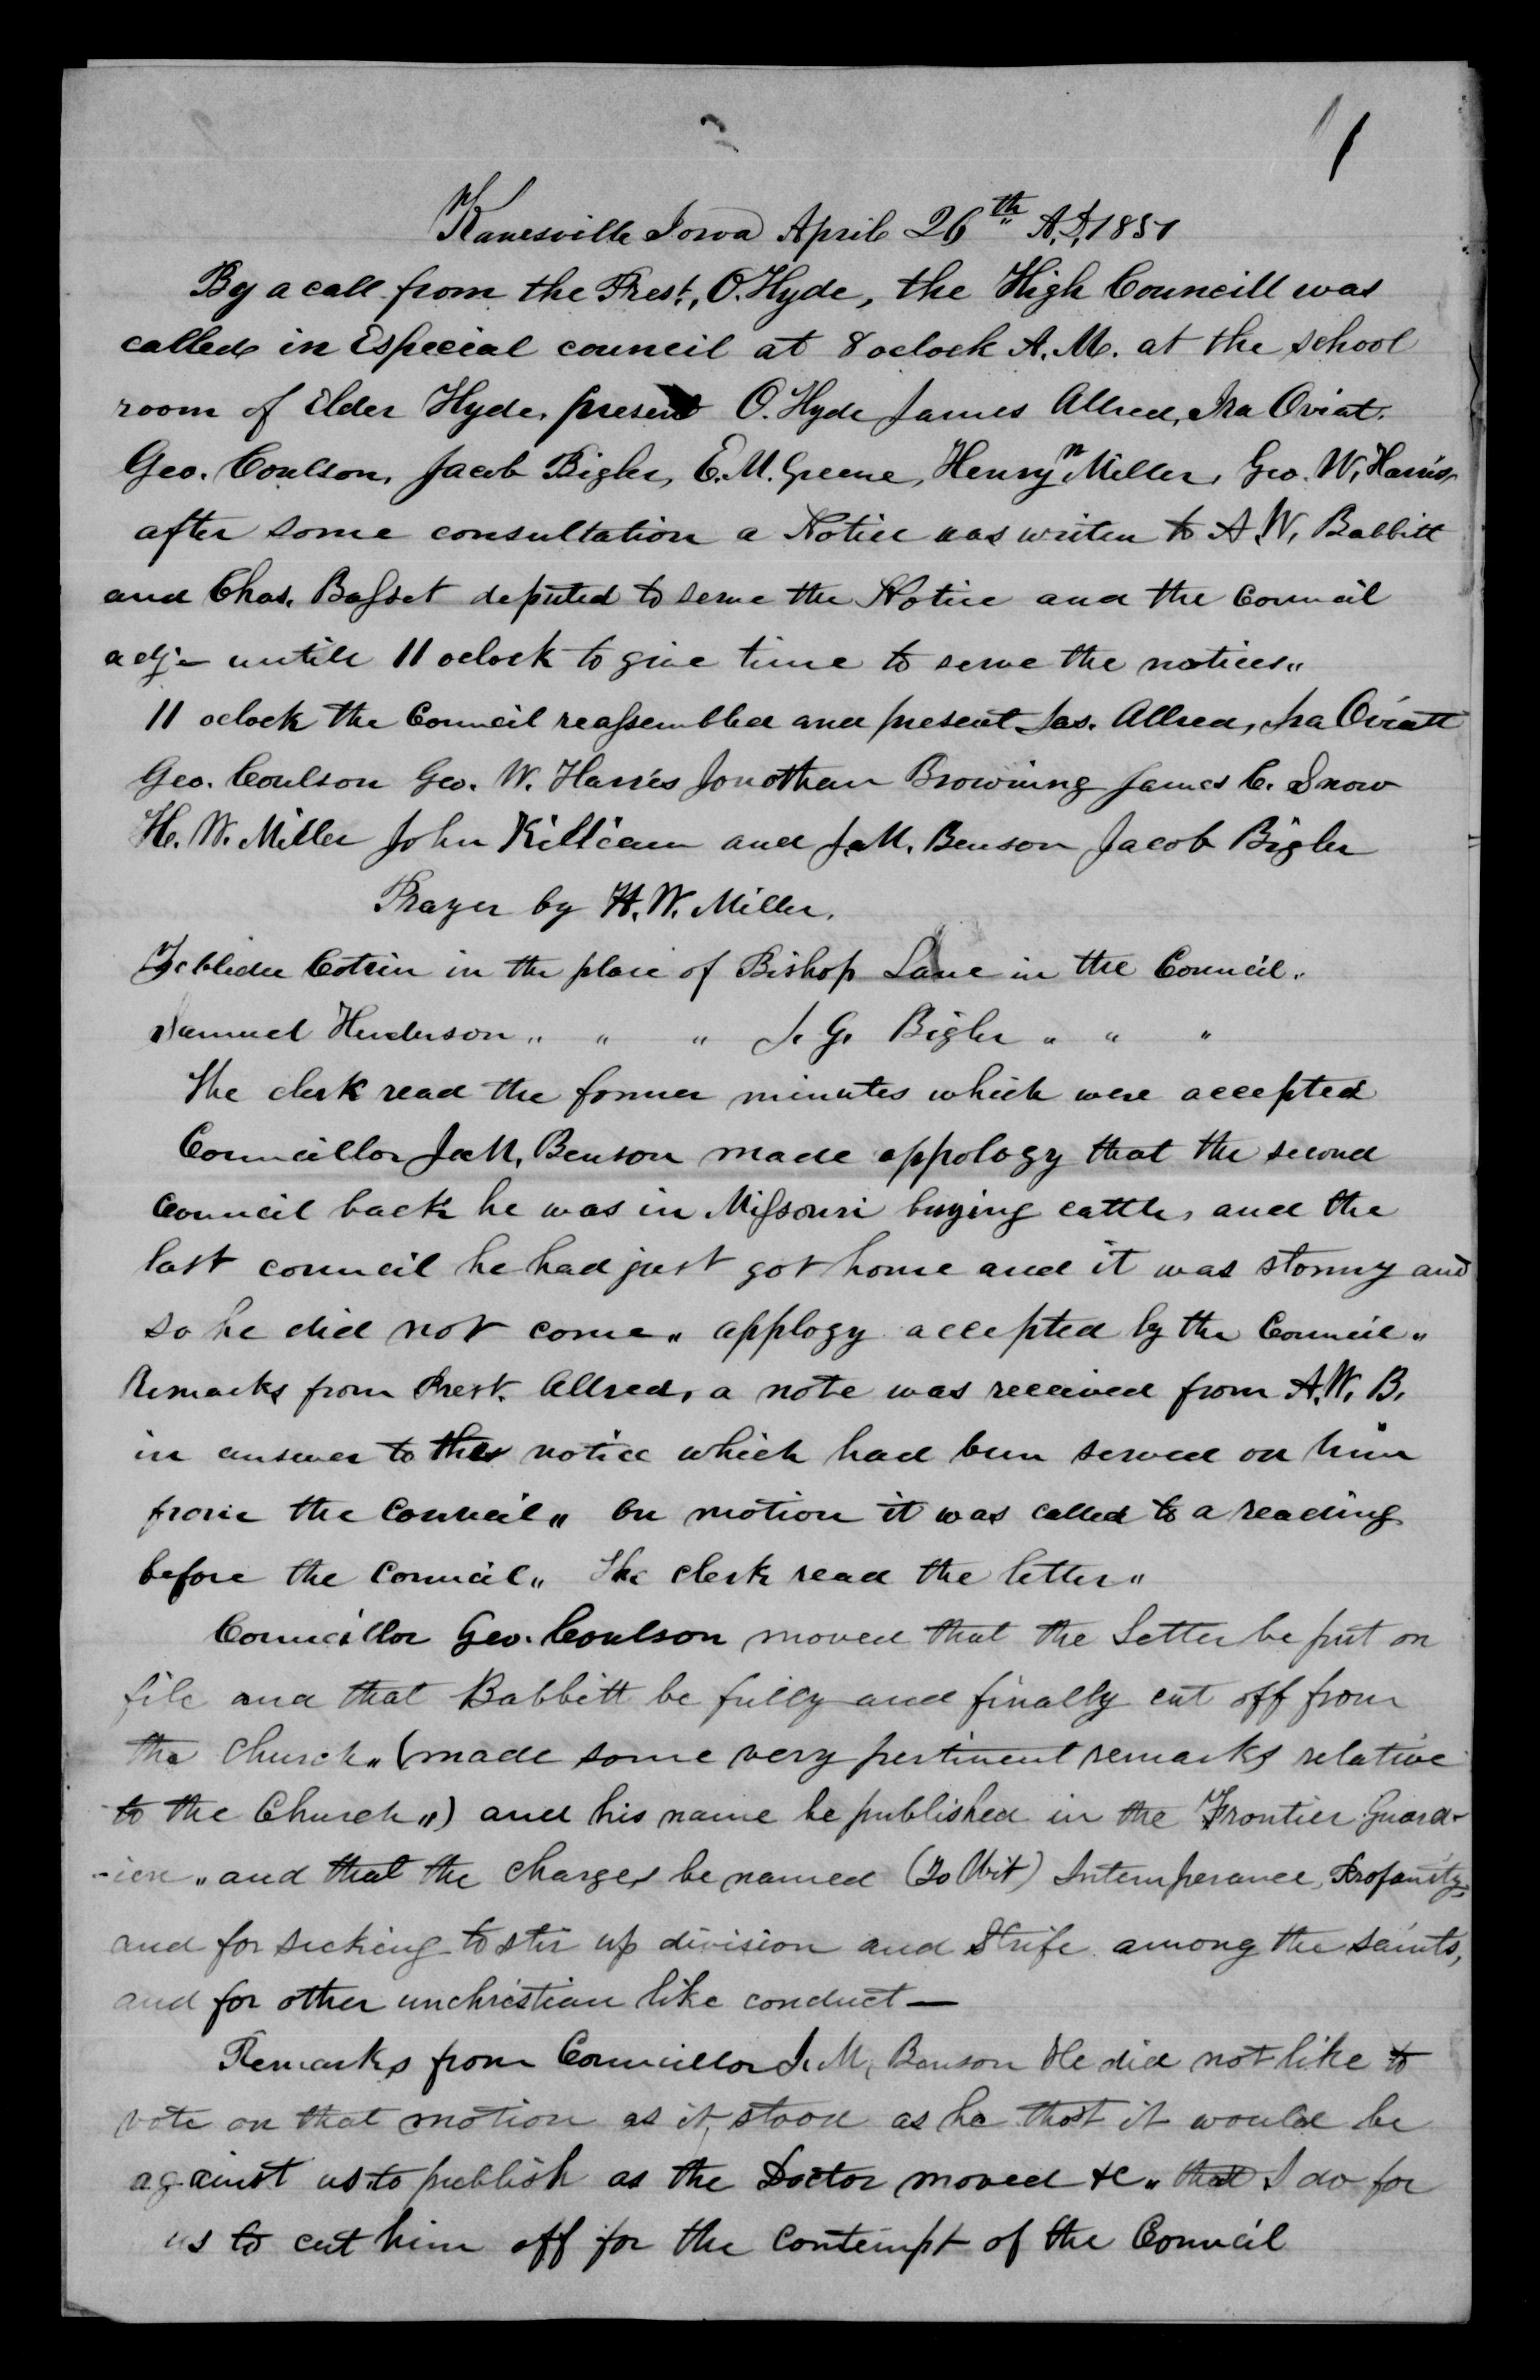 1
Kanesville Iowa April 26th A.D, 1851
By a call from the Prest., O. Hyde, the High Councill was
called in Especial council at 8 oclock A. M. at the school
room of Elder Hyde, present O. Hyde James Allred, Ira Oviat.
Geo. Coulson, Jacob Bigler, E. M. Greene, Henry W Miller, Geo. W. Harris,
after some consultation a Notice was writen to A. W. Babbitt
and Chas. Basset deputed to serve the Notice and the Council
adj- untill 11 oclock to give time to serve the notices,,
11 oclock the Council reassembled and present Jas. Allred, Ira Oviatt
Geo. Coulson Geo. W. Harris Jonothan Browning James C. Snow
H. W. Miller John Killian and J. M. Benson Jacob Bigler
Prayer by H. W. Miller.
Zeblidee Cotrin in the place of Bishop Lane in the Council.
Samuel Henderson ,, ,, ,, J. G. Bigler ,, ,, ,,
The clerk read the former minutes which were accepted
Councillor J. M. Benson made appology that the second
Council back he was in Missouri buying cattle, and the
last council he had just got home and it was stormy and
so he did not come,, applogy accepted by the Council,,
Remarks from Prest. Allred, a note was received from A. W. B.
in answer to the notice which had been served on him
from the Council,, on motion it was called to a reading
before the Council,, The clerk read the letter,,
Councillor Geo. Coulson moved that the Letter be put on
file and that Babbitt be fully and finally cut off from
the Church,, (made some very pertinent remarks relative
to the Church,,) and his name be published in the Frontier Guard-
-ien,, and that the charges be named (To Wit) Intemperance, Profanity,
and for seeking to stir up division and Strife among the saints,
and for other unchristian like conduct —
Remarks from Councillor J. M, Benson He did not like to
vote on that motion as it stood as he thot it would be
against us to publish as the Doctor moved &c,, that I do for
us to cut him off for the contempt of the Council